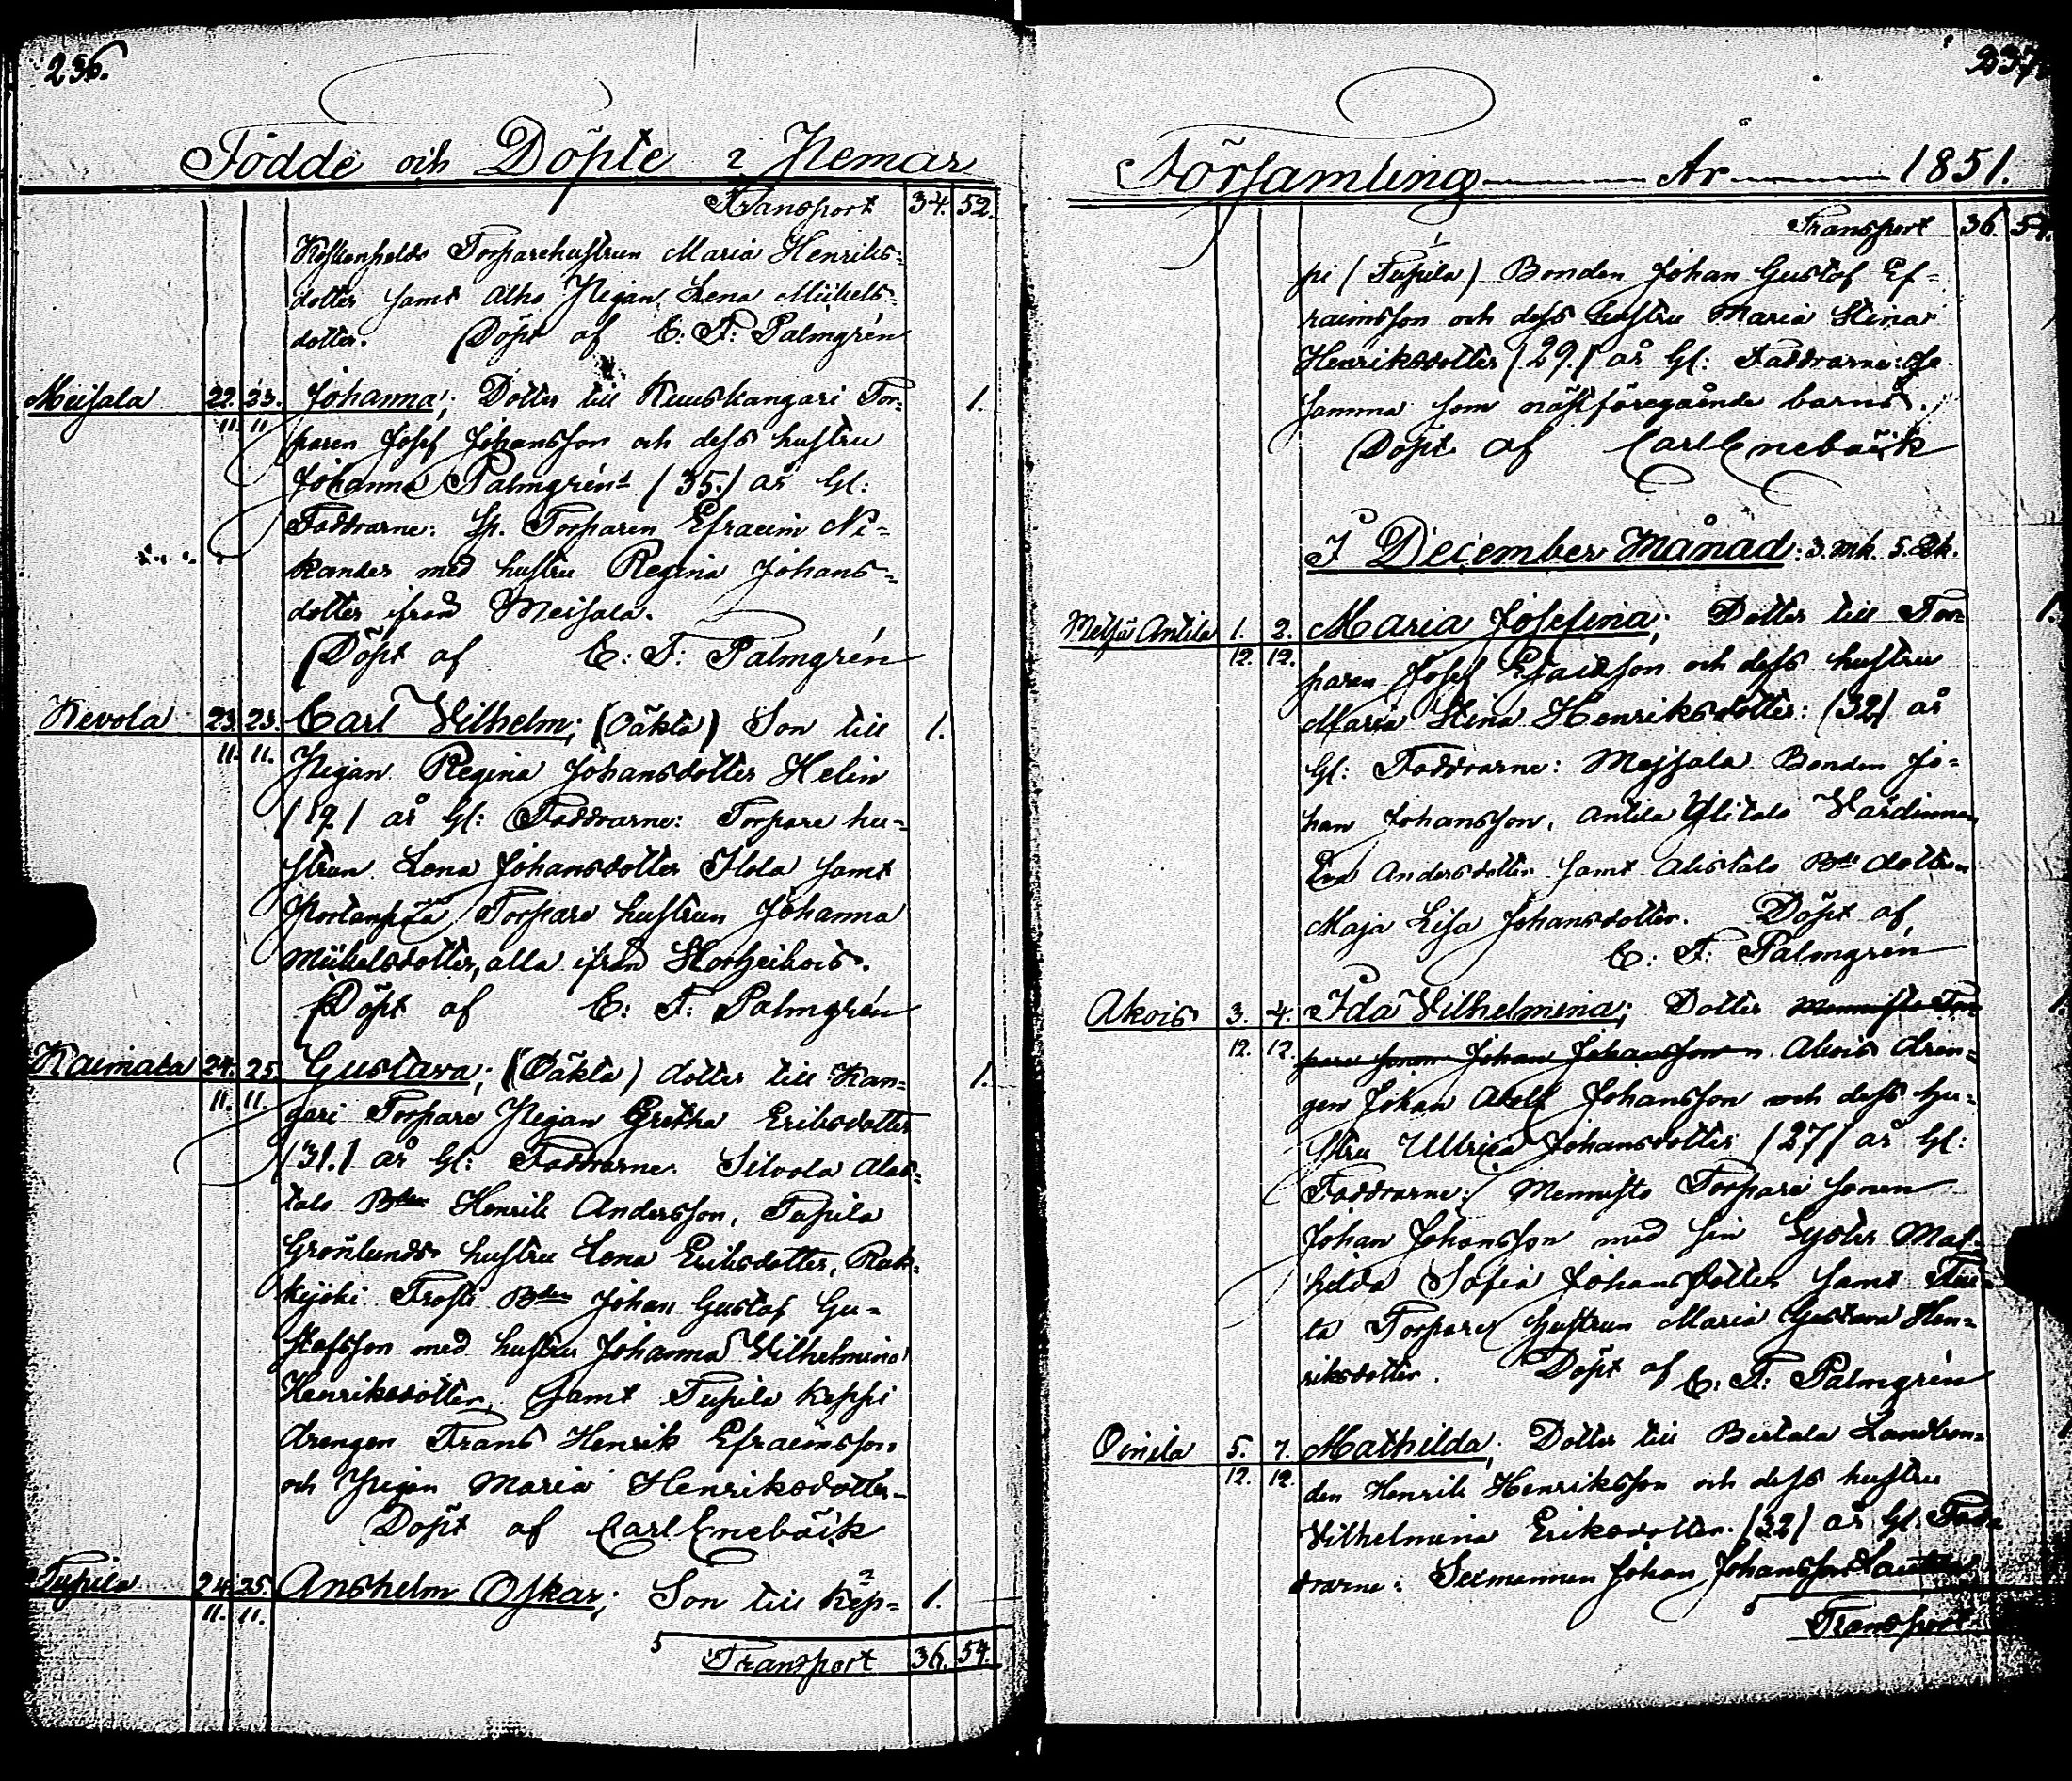 236.
Födde och Döpte i Nemar
Transport 34. 52.
Torparehustrun Maria Henriks-
dotter samt Alho Pigan Lena Mickels-
dotter. Döpt af C: F: Palmgrén
Meisala 22. 23. Johanna; Dotter till Kuuskangari Tor- 1.
11. 11 paren Josef Johansson och dess hustru
Johanna Palmgrén (35.) år Gl:
Faddrarne: Sp. Torparen Efraim Ni-
kander med hustru Regina Johans-
dotter ifrån Meisala.
Döpt af C: F: Palmgrén
Kevola 23. 23. Carl Vilhelm; (Oäkta) Son till 1.
11. 11. Pigan Regina Johansdotter Helin
(19) år Gl: Faddrarne: Torpare hu-
strun Lena Johansdotter Ilola samt
Torpare hustrun Johanna
Mickelsdotter, alla ifrån
Döpt af C: F: Palmgrén
Kaimala 24. 25. Gustava; (Oäkta) dotter till Kan- 1.
11. 11. gari Torpare Pigan Gretha Eriksdotter
(31.) år Gl: Faddrarne. Silvola Alas-
talo Bden Henrik Andersson, Tupila
Grönlunds hustru Lena Eriksdotter, Ruk-
kijoki Frosti Bden Johan Gustaf Gu-
stafsson med hustru Johanna Vilhelmina
Henriksdotter, samt Tupila Keppi
drengen Frans Henrik Efraimsson
och Pigan Maria Henriksdotter
Döpt af Carl Enebäck
Tupila 24. 25. Anshelm Oskar; Son till Kep- 1.
11. 11.
5 Transport 36. 54.
237.
Församling År 1851.
Transport 36. 54.
pi (Tupila) Bonden Johan Gustaf Ef-
raimsson och dess hustru Maria Stina
Henriksdotter (29.) år Gl: Faddrarne: de
samma som nästföregående barns.
Döpt af Carl Enebäck
I December Månad: 3. mk. 5. Qk.
Metsä Antila 1. 2. Maria Josefina; Dotter till Tor- 1.
12. 12. paren Josef Esaiasson och dess hustru
Maria Stina Henriksdotter: (32) år
Gl: Faddrarne: Mejsala Bonden Jo-
han Johansson, Antila Ylitalo Värdinnan
Eva Andersdotter samt Alistalo Bde dottren
Maja Lisa Johansdotter. Döpt af
C: F: Palmgrén
Akois 3. 4. Ida Vilhelmina; Dotter Mennisto Tor- 1.
12. 12. pare sonen Johan Johansson Akois dren-
gen Johan Adolf Johansson och dess hu-
stru Ullrica Johansdotter (27) år Gl:
Faddrarne: Mennisto Torpare sonen
Johan Johansson med sin Syster Mat-
hilda Sofia Johansdotter samt
Torpare hustrun Maria Gustava Hen-
riksdotter. Döpt af C: F: Palmgrén
Oinila 5. 7. Mathilda; Dotter till Bertala Landbon-
12. 12. den Henrik Henriksson och dess hustru
Vilhelmina Eriksdotter. (32) år Gl: Fad-
drarne: Johan Johansson
5 Transport